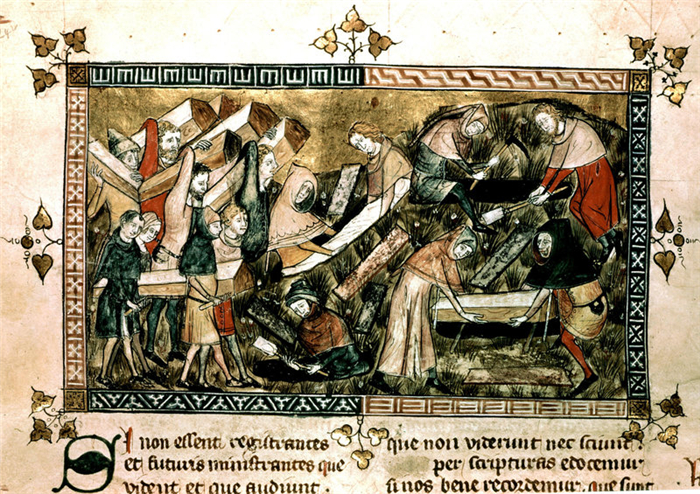 Si non essent registrantes
et futuris ministrantes que
vident et que audiunt.
que non viderunt nec sciunt.
per scripturas edocemur
si nos bene recordemur. que sunt